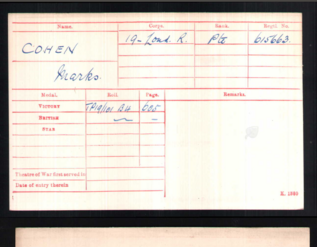 Name. Corps. Rank. Regtl. No.
COHEN 19-Lond. R. Pte 615663
Marks.
Medal. Roll. Page. Remarks.
VICTORY TP19/101 B4 605
BRITISH
STAR
Theatre of War first served in
Date of entry therein
K. 1380